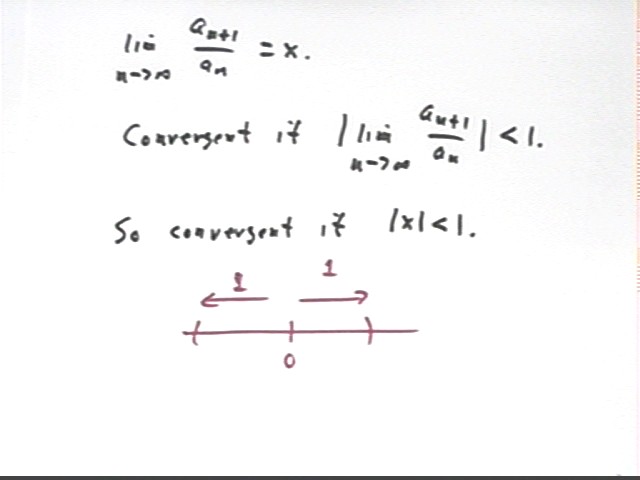 lim n->∞ a_{n+1}/a_n = x.
Convergent if |lim n->∞ a_{n+1}/a_n| < 1.
So convergent if |x| < 1.
1 1
0